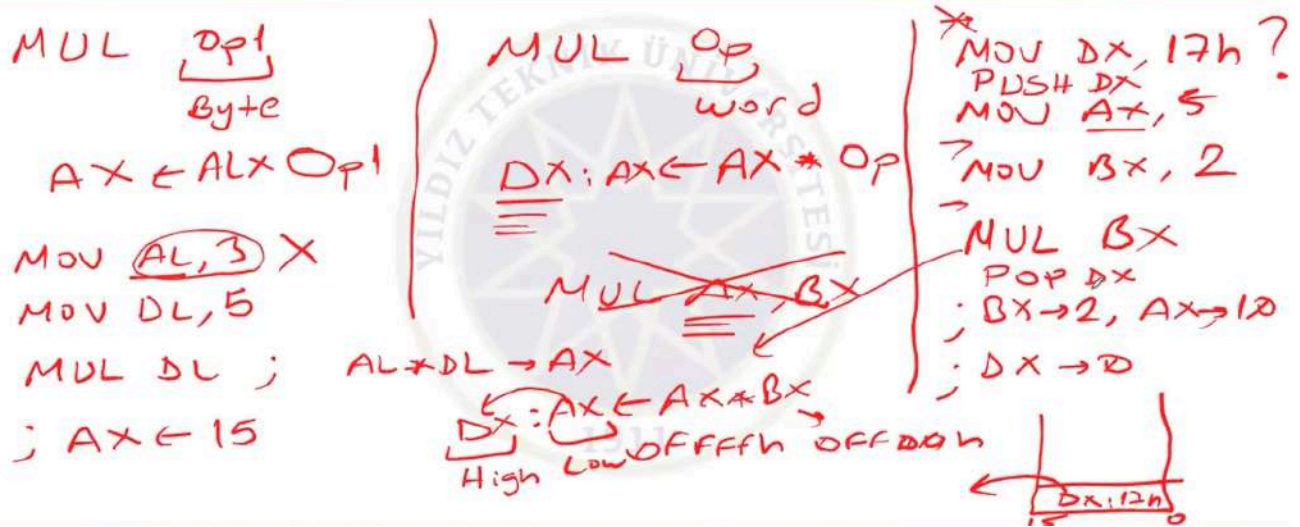 MUL Op1
Byte
AX ← AL x Op1
MOV AL, 3 X
MOV DL, 5
MUL DL ; AL*DL → AX
; AX ← 15
MUL Op
word
DX : AX ← AX * Op
MUL AX, BX
DX : AX ← AX * BX
High Low 0FFFFh
* MOV DX, 17h ?
PUSH DX
MOV AX, 5
MOV BX, 2
MUL BX
POP DX
; BX → 2, AX → 10
; DX → 0
15 0
YILDIZ TEKNİK ÜNİVERSİTESİ
1911